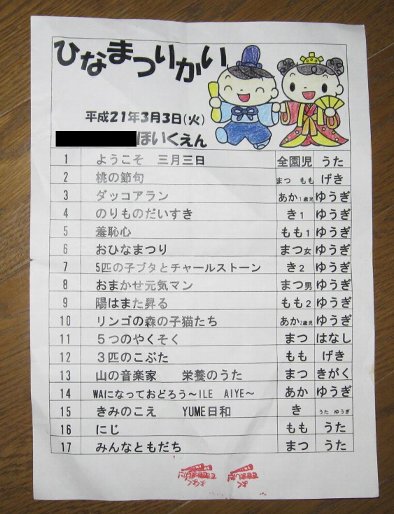 ひなまつりかい
平成21年3月3日(火)
ほいくえん
1 ようこそ 三月三日 全園児 うた
2 桃の節句 まつ もも げき
3 ダッコアラン あか1歳児 ゆうぎ
4 のりものだいすき き1 ゆうぎ
5 羞恥心 もも1 ゆうぎ
6 おひなまつり まつ女 ゆうぎ
7 5匹の子ブタとチャールストーン き2 ゆうぎ
8 おまかせ元気マン まつ男 ゆうぎ
9 陽はまた昇る もも2 ゆうぎ
10 リンゴの森の子猫たち あか2歳児 ゆうぎ
11 5つのやくそく まつ はなし
12 3匹のこぶた もも げき
13 山の音楽家 栄養のうた まつ きがく
14 WAになっておどろう～ILE AIYE～ あか ゆうぎ
15 きみのこえ YUME日和 き うた ゆうぎ
16 にじ もも うた
17 みんなともだち まつ うた